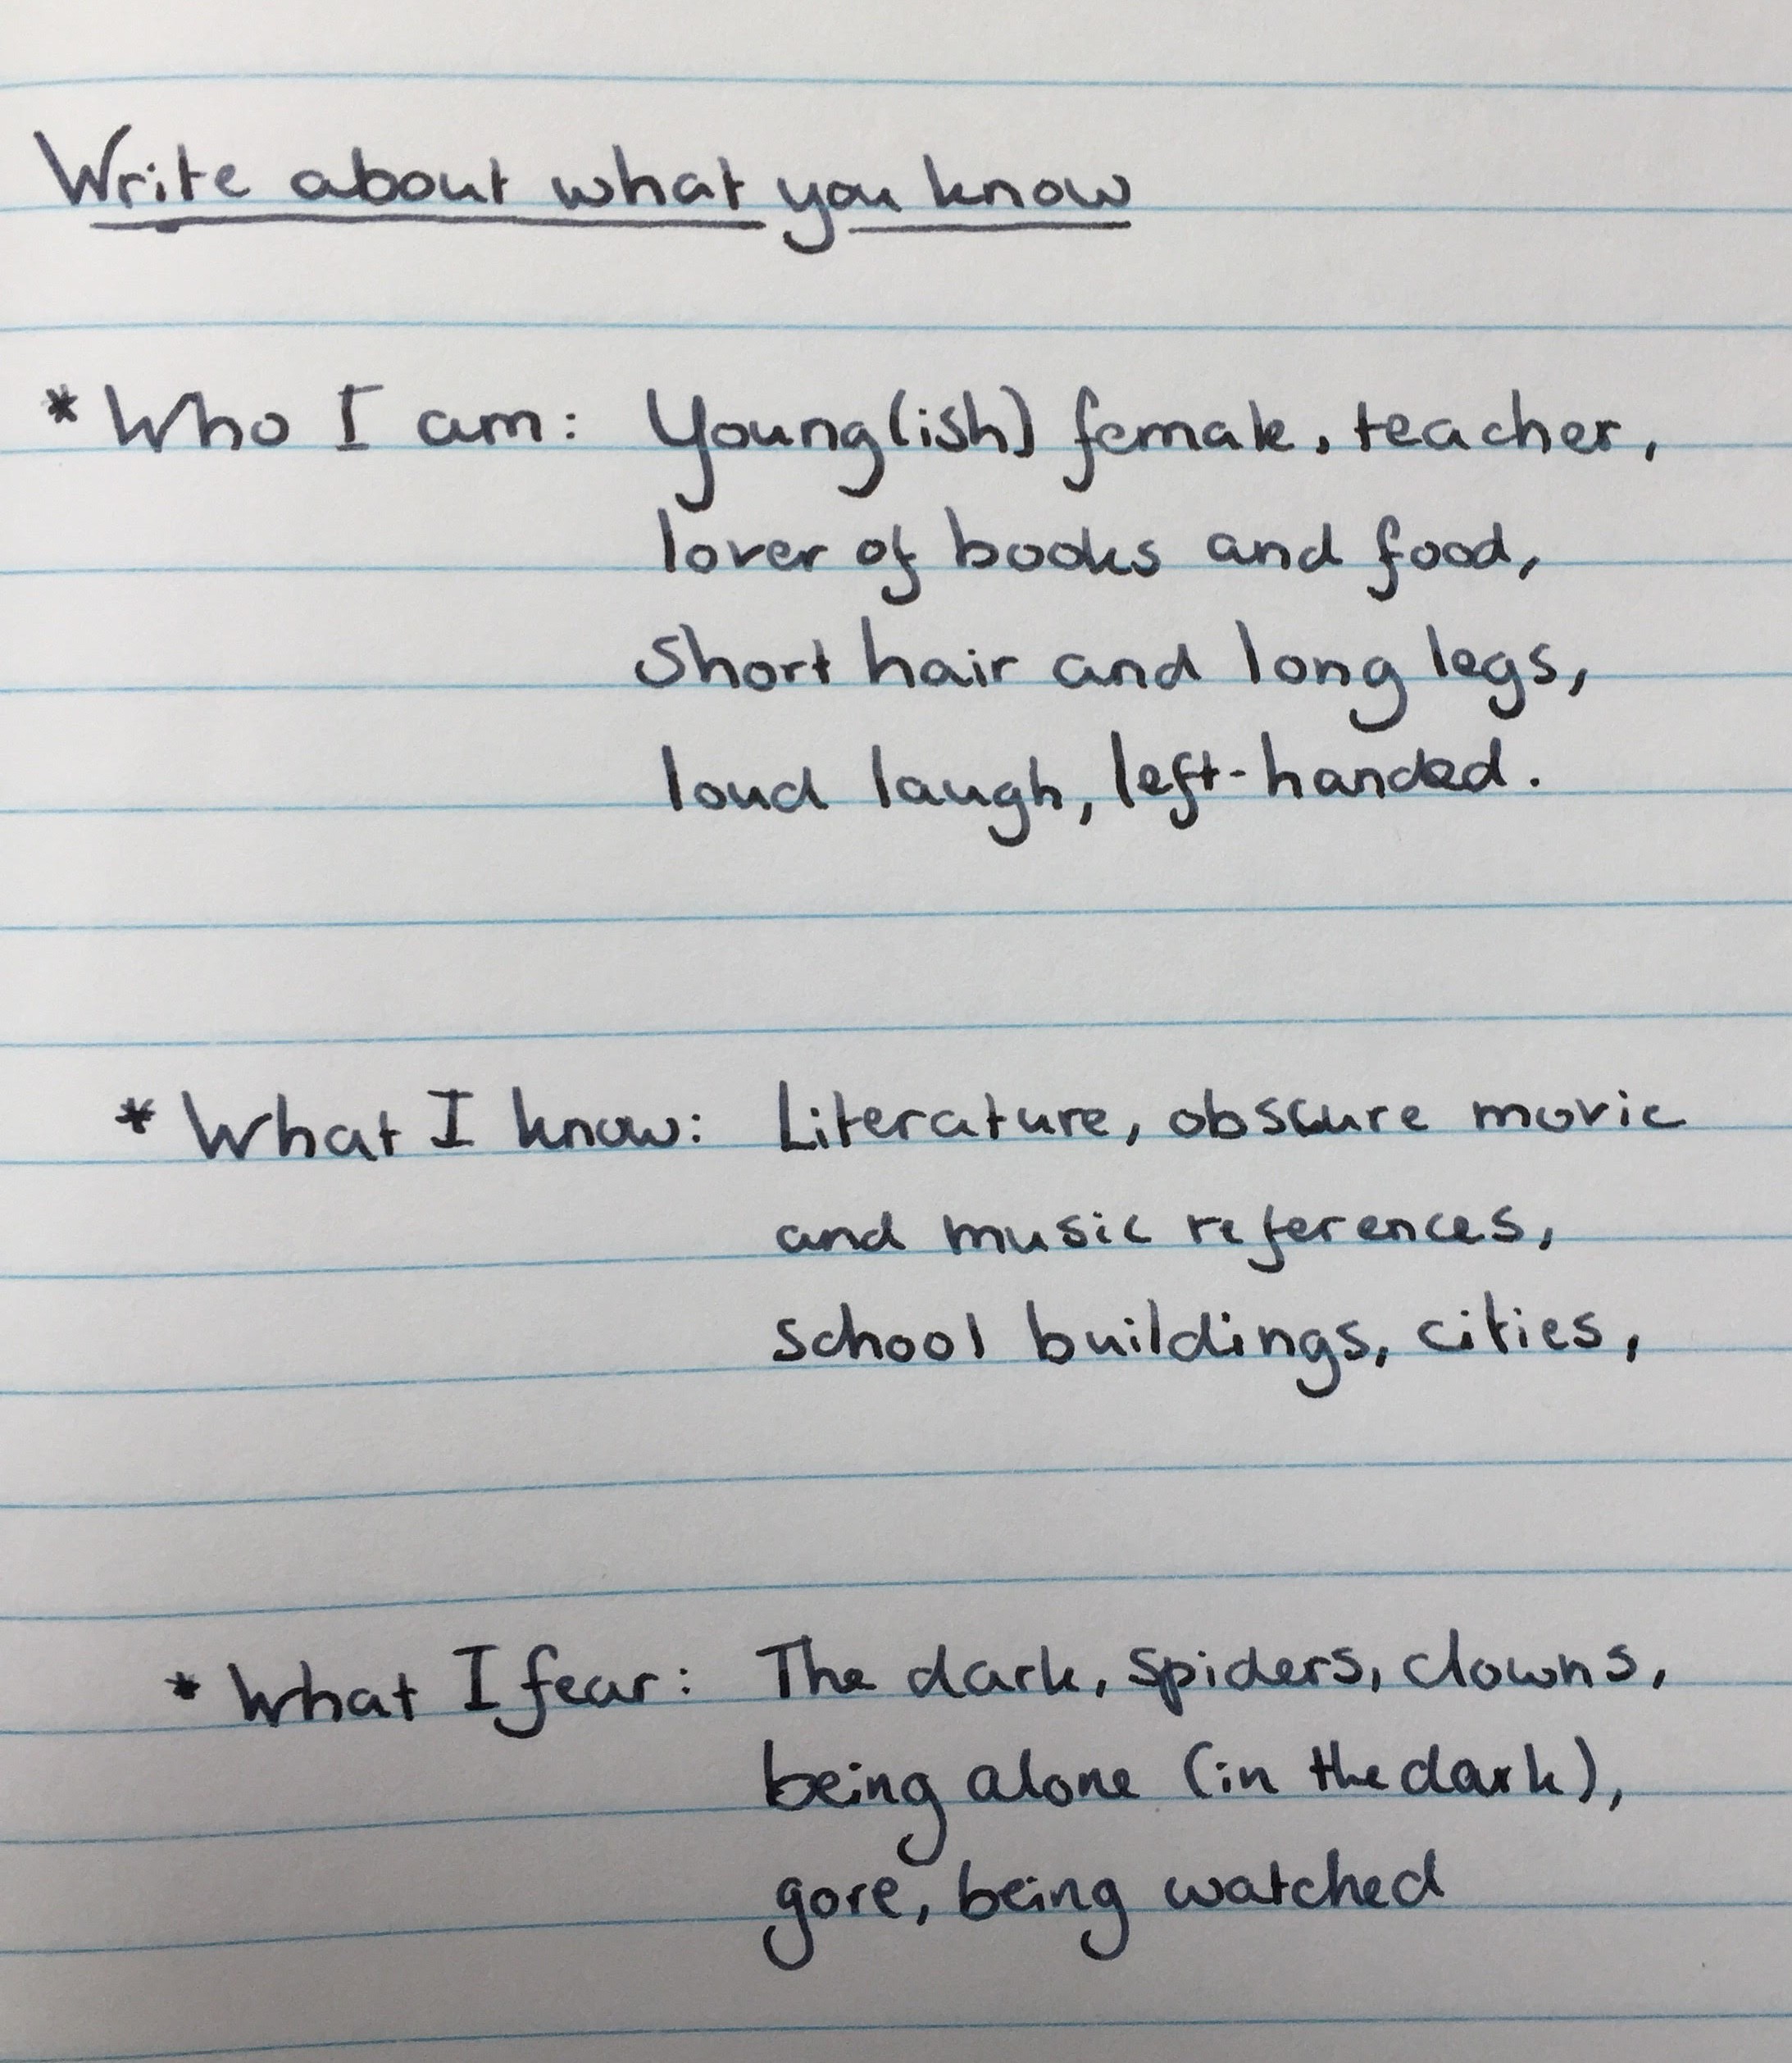 Write about what you know
* Who I am: Young(ish) female, teacher,
lover of books and food,
short hair and long legs,
loud laugh, left-handed.
* What I know: Literature, obscure movie
and music references,
school buildings, cities,
* What I fear: The dark, spiders, clowns,
being alone (in the dark),
gore, being watched